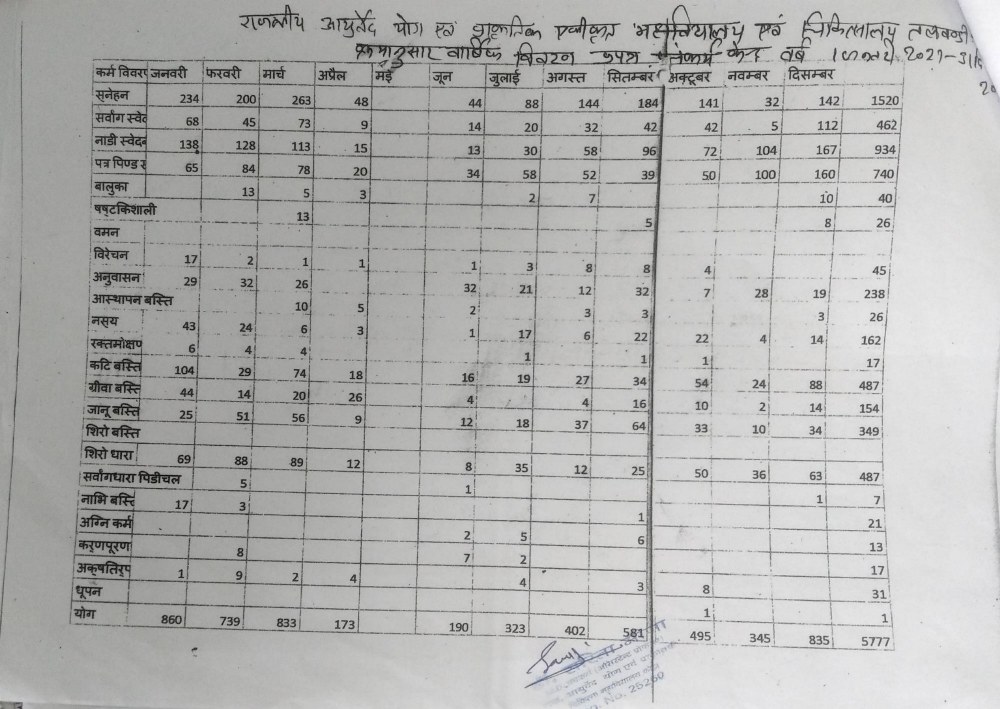 राजकीय आयुर्वेद योग एवं प्राकृतिक एकीकृत महाविद्यालय एवं चिकित्सालय
क्रमानुसार वार्षिक विवरण पंचकर्म केन्द्र वर्ष 1 जनवरी 2021-31
कर्म विवरण जनवरी फरवरी मार्च अप्रैल मई जून जुलाई अगस्त सितम्बर अक्टूबर नवम्बर दिसम्बर
स्नेहन 234 200 263 48 44 88 144 184 141 32 142 1520
सर्वांग स्वेद 68 45 73 9 14 20 32 42 42 5 112 462
नाडी स्वेदन 138 128 113 15 13 30 58 96 72 104 167 934
पत्र पिण्ड स 65 84 78 20 34 58 52 39 50 100 160 740
बालुका 13 5 3 2 7 10 40
षष्टकिशाली 13 5 8 26
वमन
विरेचन 17 2 1 1 1 3 8 8 4 45
अनुवासन 29 32 26 32 21 12 32 7 28 19 238
आस्थापन बस्ति 10 5 2 3 3 3 26
नस्य 43 24 6 3 1 17 6 22 22 4 14 162
रक्तमोक्षण 6 4 4 1 1 1 17
कटि बस्ति 104 29 74 18 16 19 27 34 54 24 88 487
ग्रीवा बस्ति 44 14 20 26 4 4 16 10 2 14 154
जानू बस्ति 25 51 56 9 12 18 37 64 33 10 34 349
शिरो बस्ति
शिरो धारा 69 88 89 12 8 35 12 25 50 36 63 487
सर्वांगधारा पिडीचल 5 1 1 7
नाभि बस्ति 17 3 1 21
अग्नि कर्म 2 5 6 13
कर्णपूरण 8 7 2 17
अक्षतिर्प 1 9 2 4 4 3 8 31
धूपन 1 1
योग 860 739 833 173 190 323 402 581 495 345 835 5777
No. 25260